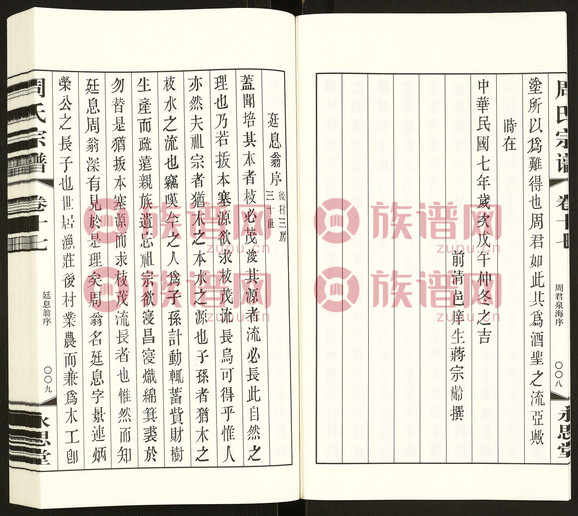 周氏宗譜
卷十七
周君泉海序
〇〇八
永思堂
塗所以爲難得也周君如此其爲酒聖之流亞歟
時在
中華民國七年歲次戊午仲冬之吉
前清邑庠生蔣宗勵撰
廷息翁序
後村三房
三十世
蓋聞培其木者枝必茂浚其源者流必長此自然之
理也乃若拔本塞源欲求枝茂流長烏可得乎惟人
亦然夫祖宗者猶木之本水之源也子孫者猶木之
枝水之流也竊嘆今之人爲子孫計動輒蓄貲財樹
生產而疏遠親族遺忘祖宗欲寢昌寢熾綿箕裘於
勿替是猶拔本塞源而求枝茂流長者也惟然而知
廷息周翁深有見於是理矣周翁名廷息字景連炳
榮公之長子也世居漁莊後村業農而兼爲木工卽
周氏宗譜
卷十七
廷息翁序
〇〇九
永思堂
族谱网
zupu.cn
族谱网
zupu.cn
族谱网
zupu.cn
族谱网
zupu.cn